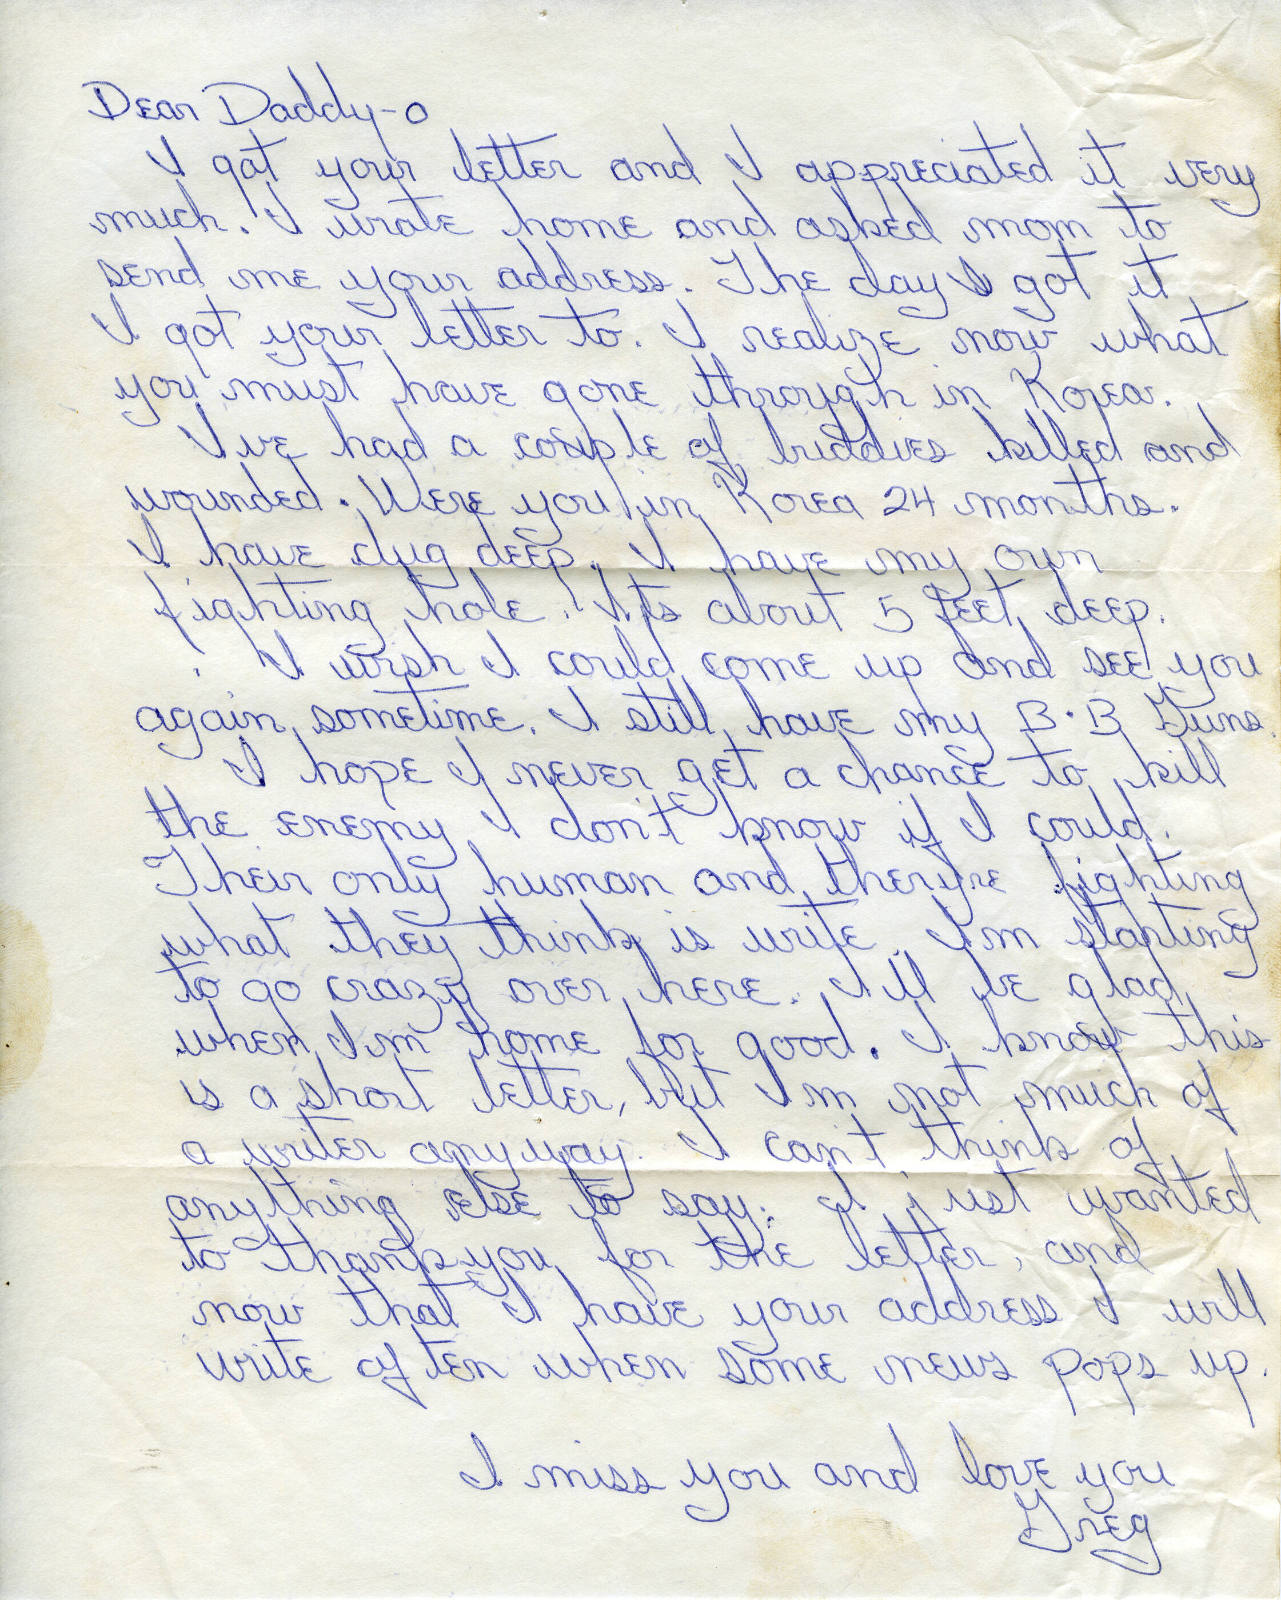 Dear Daddy-o
I got your letter and I appreciated it very
much. I wrote home and asked mom to
send me your address. The day I got it
I got your letter to. I realize now what
you must have gone through in Korea.
I've had a couple of buddies killed and
wounded. Were you in Korea 24 months.
I have dug deep. I have my own
fighting hole. Its about 5 feet deep.
I wish I could come up and see you
again sometime. I still have my B.B Guns.
I hope I never get a chance to kill
the enemy I don't know if I could.
Their only human and they're fighting
what they think is write. I'm starting
to go crazy over here. I'll be glad
when I'm home for good. I know this
is a short letter, but I'm not much of
a writer anyway. I can't think of
anything else to say. I just wanted
to thank you for the letter, and
now that I have your address I will
write often when some news pops up.
I miss you and love you
Greg